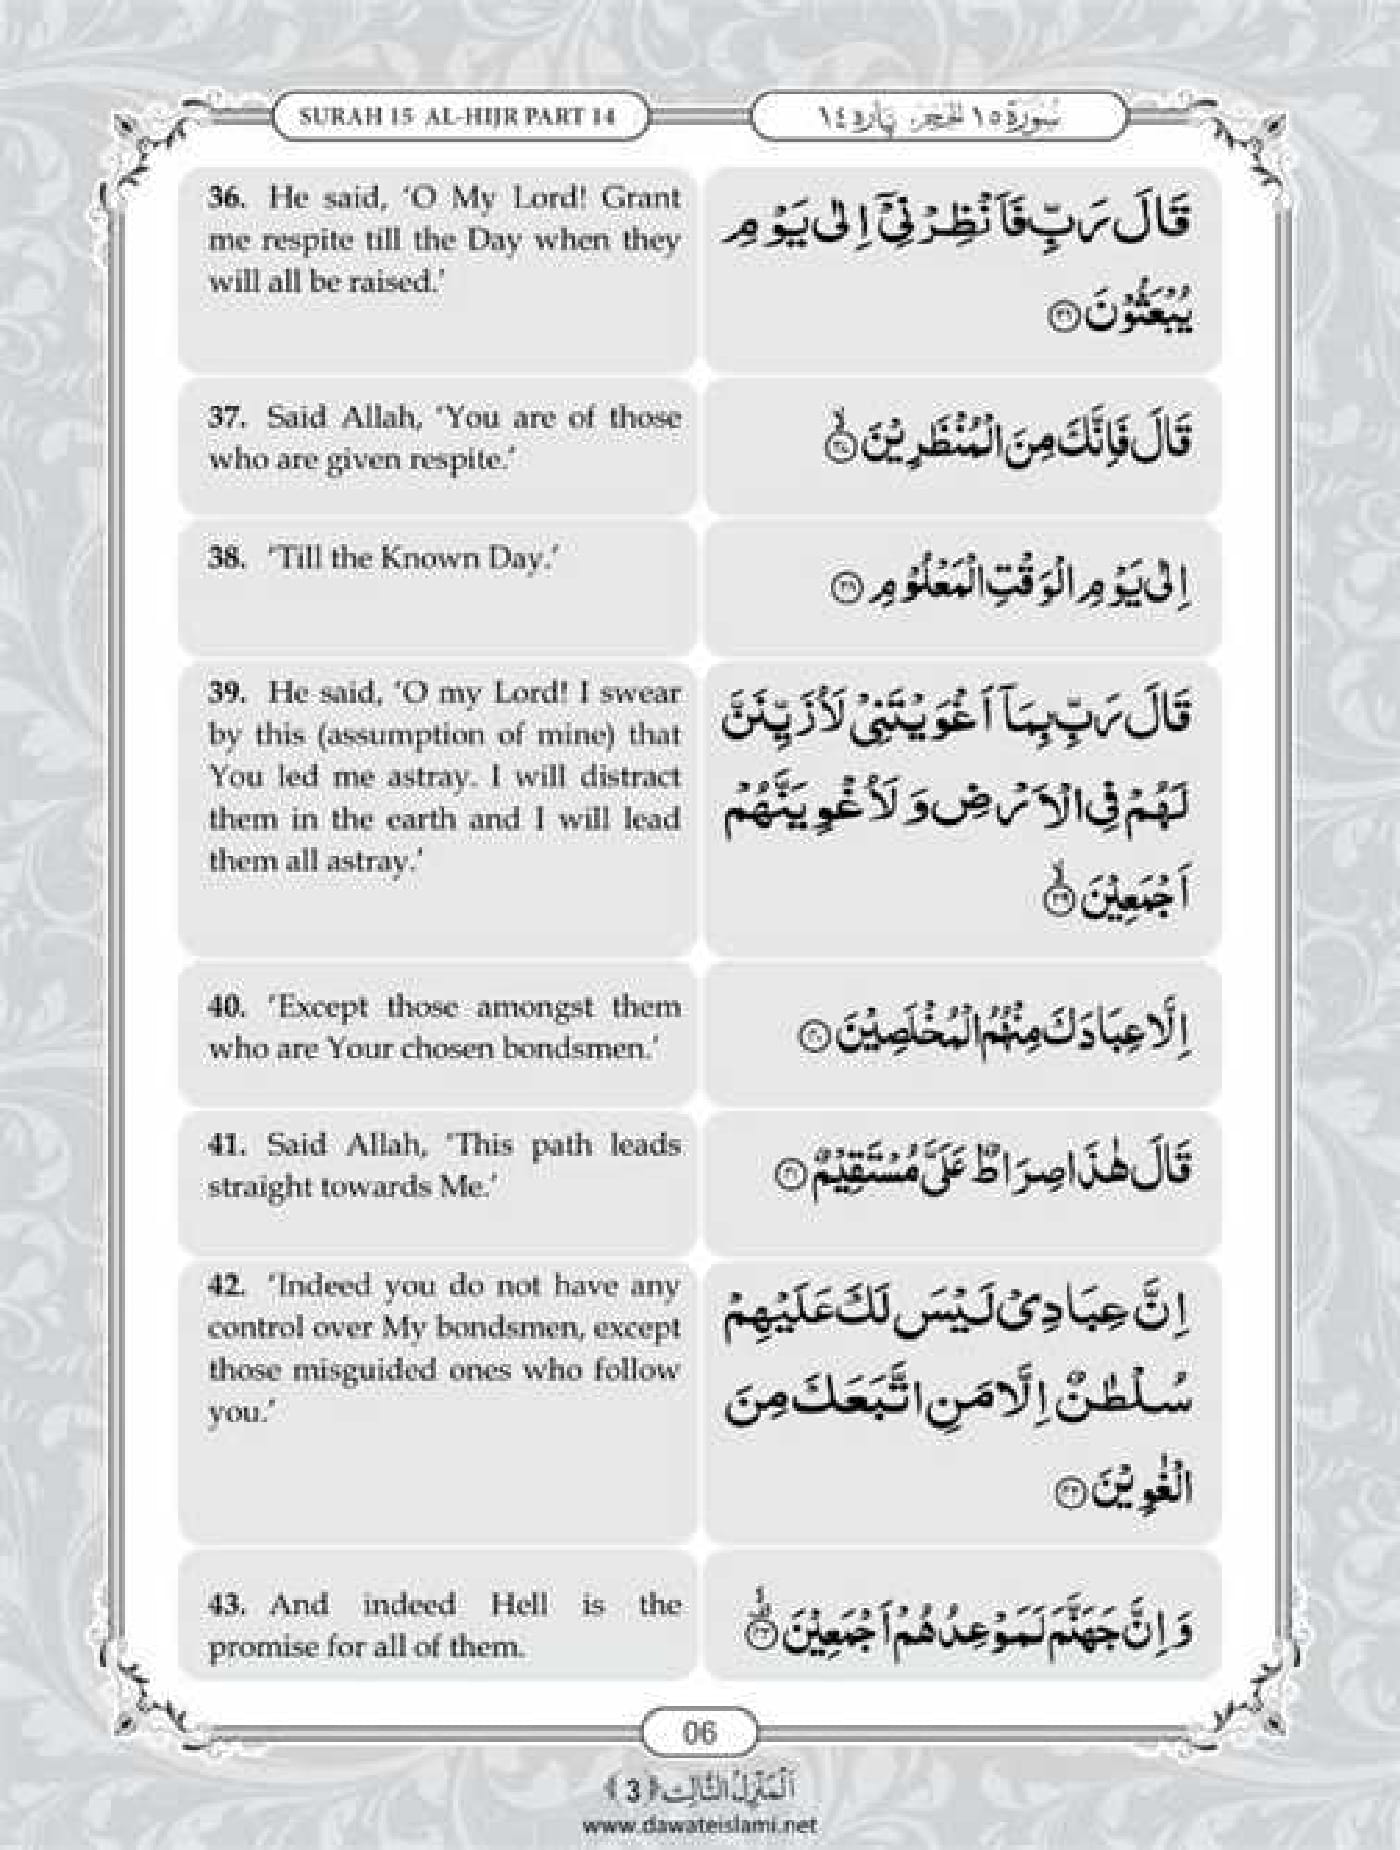 SURAH 15 AL-HIJR PART 14
سُوۡرَةُ ١٥ اَلۡحِجۡر، پارہ ١٤
36. He said, ‘O My Lord! Grant
me respite till the Day when they
will all be raised.’
قَالَ رَبِّ فَاَنْظِرْنِیْۤ اِلٰی یَوْمِ
یُبْعَثُوْنَ ﴿۳۶﴾
37. Said Allah, ‘You are of those
who are given respite.’
قَالَ فَاِنَّكَ مِنَ الْمُنْظَرِیْنَ ﴿ۙ۳۷﴾
38. ‘Till the Known Day.’
اِلٰی یَوْمِ الْوَقْتِ الْمَعْلُوْمِ ﴿۳۸﴾
39. He said, ‘O my Lord! I swear
by this (assumption of mine) that
You led me astray. I will distract
them in the earth and I will lead
them all astray.’
قَالَ رَبِّ بِمَاۤ اَغْوَیْتَنِیْ لَاُزَیِّنَنَّ
لَهُمْ فِی الْاَرْضِ وَ لَاُغْوِیَنَّهُمْ
اَجْمَعِیْنَ ﴿ۙ۳۹﴾
40. ‘Except those amongst them
who are Your chosen bondsmen.’
اِلَّا عِبَادَكَ مِنْهُمُ الْمُخْلَصِیْنَ ﴿۴۰﴾
41. Said Allah, ‘This path leads
straight towards Me.’
قَالَ هٰذَا صِرَاطٌ عَلَیَّ مُسْتَقِیْمٌ ﴿۴۱﴾
42. ‘Indeed you do not have any
control over My bondsmen, except
those misguided ones who follow
you.’
اِنَّ عِبَادِیْ لَیْسَ لَكَ عَلَیْهِمْ
سُلْطٰنٌ اِلَّا مَنِ اتَّبَعَكَ مِنَ
الْغٰوِیْنَ ﴿۴۲﴾
43. And indeed Hell is the
promise for all of them.
وَ اِنَّ جَهَنَّمَ لَمَوْعِدُهُمْ اَجْمَعِیْنَ ﴿۴۳﴾
06
اَلْمَنْزِلُ الثَّالِث ﴿3﴾
www.dawateislami.net